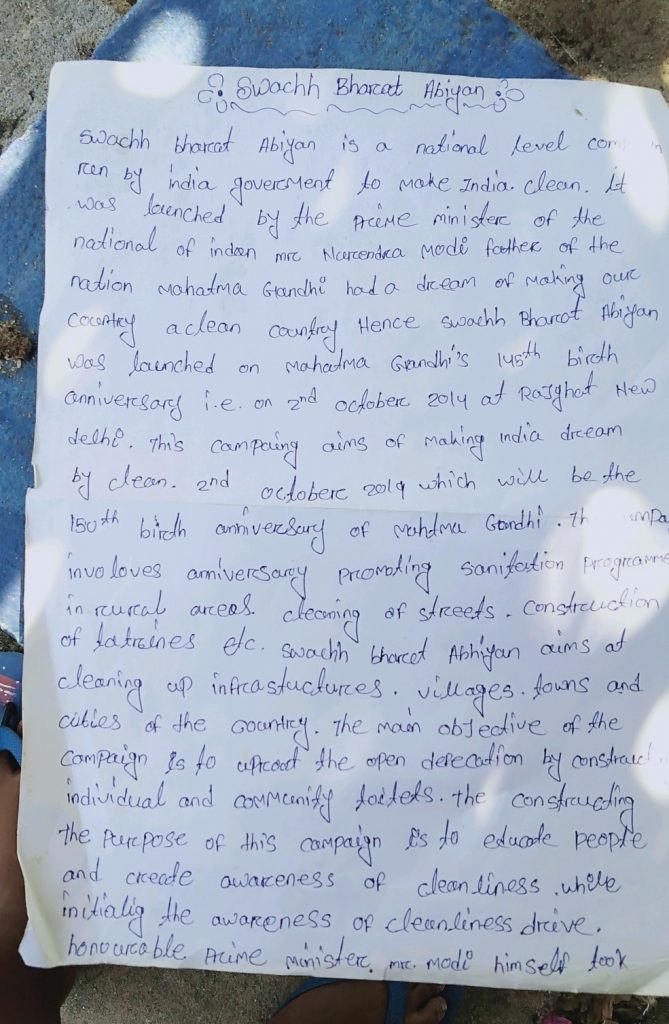 Swachh Bharat Abiyan
Swachh bharat Abiyan is a national level
ren by india goverment to make India. clean. It
was launched by the Prime minister of the
national of indan mr Narendra Modi father of the
nation Mahatma Gandhi had a dream of making our
Country a clean country Hence Swachh Bharat Abiyan
was launched on Mahatma Gandhi's 145th birth
anniversary i.e. on 2nd october 2014 at RaJghat New
delhi. This campaing aims of making india dream
by clean. 2nd october 2019 which will be the
150th birth anniversary of Mahatma Gandhi.
involoves anniversary promoting sanitation programme
in rural areas. cleaning of streets. construction
of latraines etc. Swachh bharat Abhiyan aims at
cleaning up infrastuctures. villages. towns and
cities of the Country. The main obJective of the
Campaign is to uproot the open defecation by
individual and community toilets. The constructing
the purpose of this campaign is to educate people
and create awareness of cleanliness. while
initialig the awareness of cleanliness drive.
honourable Prime minister. mr. modi himself took